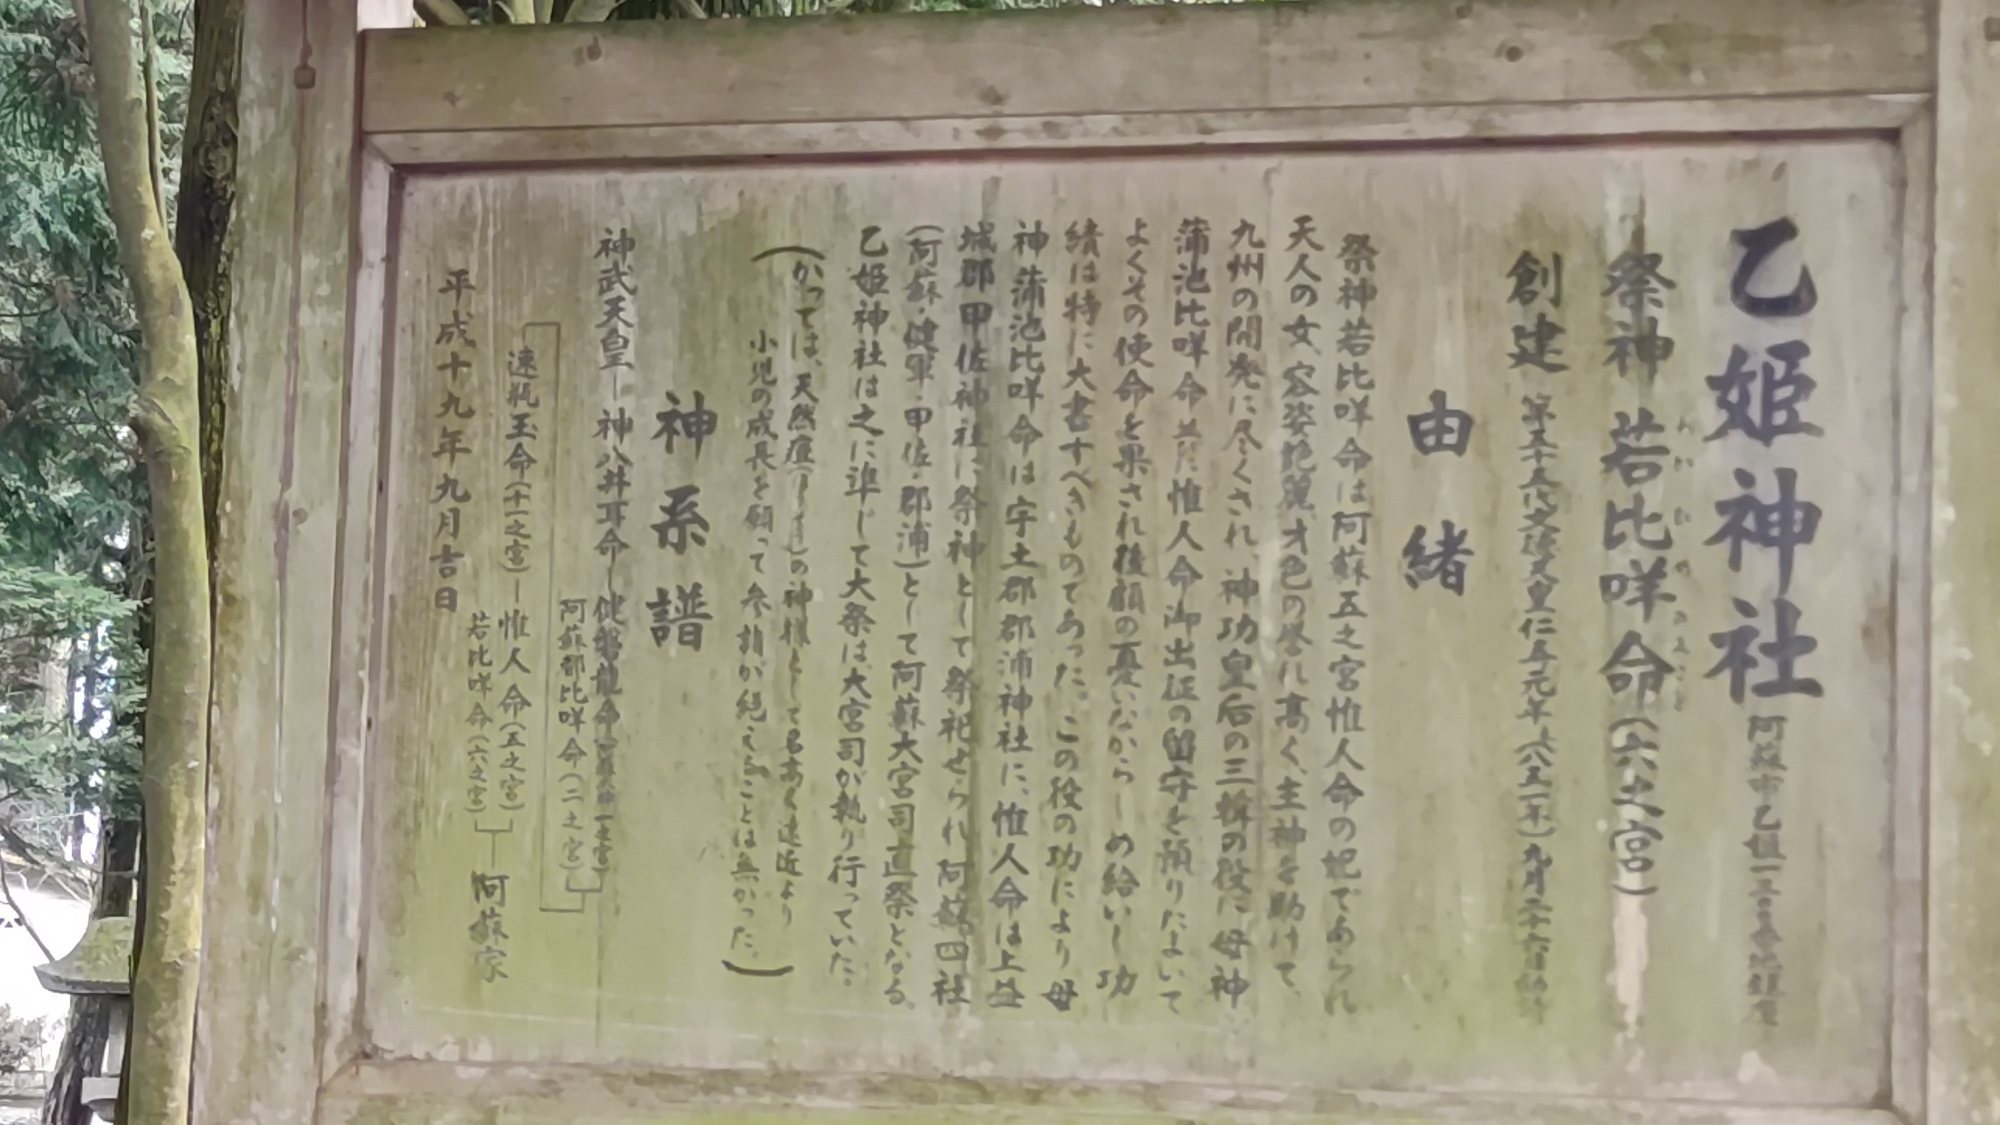 乙姫神社 阿蘇市乙姫
祭神 若比咩命（六之宮）
創建 第五十五代文徳天皇仁寿元年（八五一年）九月二十六日
由緒
祭神若比咩命は阿蘇五之宮惟人命の妃であられ
天人の女、容姿絶麗、才色の誉れ高く、主神を助けて、
九州の開発に尽くされ、神功皇后の三韓の役に母神
蒲池比咩命並に惟人命御出征の留守を預りたよいて
よくその使命を果され後顧の憂いなからしめ給いし功
績は特に大書すべきものであった。この役の功により母
神蒲池比咩命は宇土郡郡浦神社に、惟人命は上益
城郡甲佐神社に祭神として祭祀せられ阿蘇四社
（阿蘇・健軍・甲佐・郡浦）として阿蘇大宮司直祭となる。
乙姫神社は之に準じて大祭は、大宮司が執り行っていた。
（かつては、天然痘の神様として名高く遠近より
小児の成長を願って参詣が絶えることは無かった。）
神系譜
神武天皇－神八井耳命－健磐龍命
阿蘇都比咩命（二之宮）
速瓶玉命（十一之宮）－惟人命（五之宮）
若比咩命（六之宮）
阿蘇家
平成十九年九月吉日